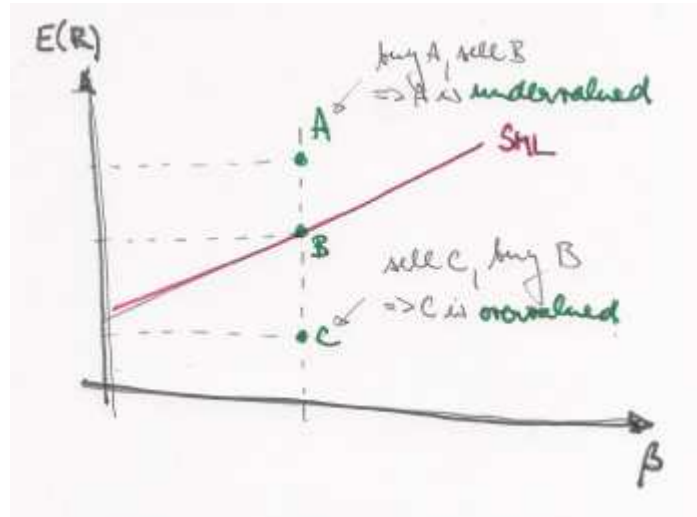 E(R)
buy A, sell B
=> A is undervalued
A
SML
B
sell C, buy B
=> C is overvalued
C
β